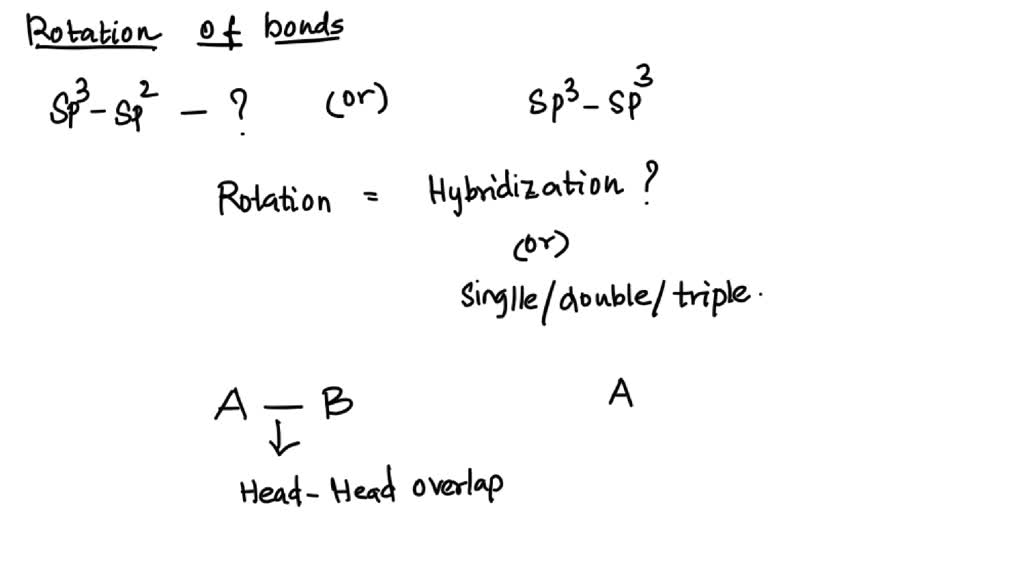 Rotation of bonds
Sp³-Sp² - ? (or) Sp³-Sp³
Rotation = Hybridization ?
(or)
Singlle/double/triple.
A — B A
↓
Head-Head overlap